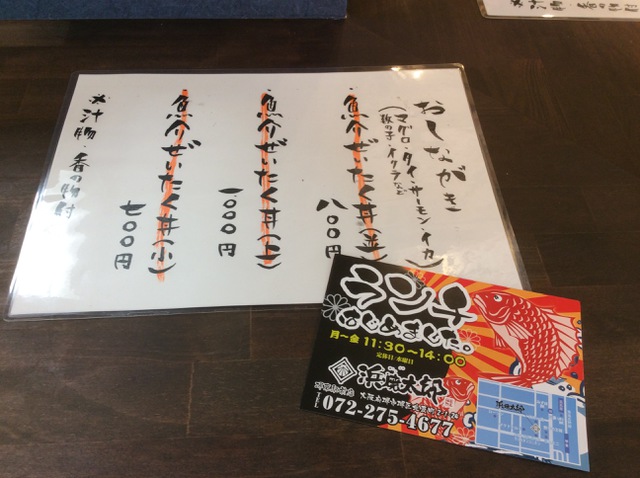 おしながき
(マグロ・タイ・サーモン・イカ
数の子・イクラなど)
・魚介ぜいたく丼(並)
八〇〇円
・魚介ぜいたく丼(上)
一〇〇〇円
・魚介ぜいたく丼(小)
七〇〇円
※汁物・香の物付
※汁物・香の物付
ランチ
はじめました。
月〜金 11:30〜14:00
定休日/水曜日
浜藤太郎
TEL 072-275-4677